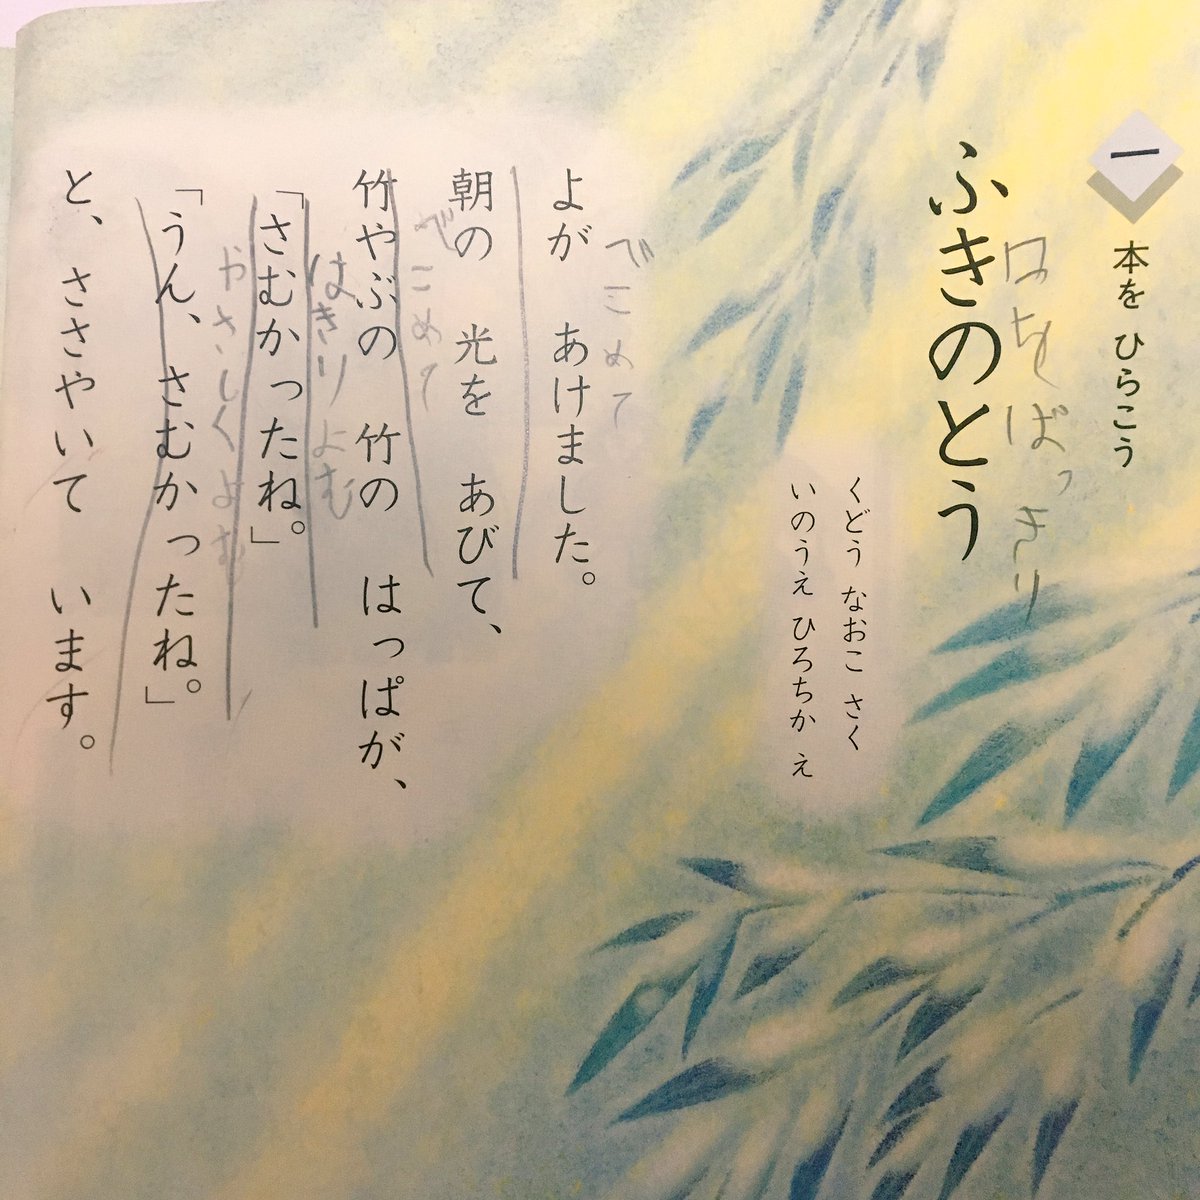 一
本を ひらこう
口をはっきり
ふきのとう
くどう なおこ さく
いのうえ ひろちか え
でこめて
よが あけました。
朝の 光を あびて、
でこめて
竹やぶの 竹の はっぱが、
はきりよむ
「さむかったね。」
やさしくよむ
「うん、さむかったね。」
と、ささやいて います。